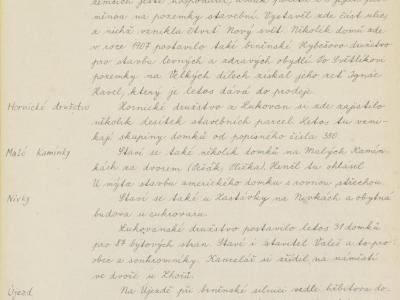 zemských ještě hospodařil, však
měnou na pozemky stavební. Vystavil zde část ulic,
z nichž vznikla čtvrť Nový svět. Několik domů zde
v roce 1907 postavilo také brněnské Hyběšovo družstvo
pro stavbu levných a zdravých obydlí. Po Světlíkovi
pozemky na Velkých dílech získal jeho zeť Ignác
Havel, který je letos dává do prodeje.
Hornické družstvo Hornické družstvo z Lukovan si zde zajistilo
několik desítek stavebních parcel. Letos tu vzni-
kají skupiny domků od popisného čísla 380.
Malé Kamínky Staví se také několik domků na Malých Kamín-
kách za dvorem (Ošťák, Plička). Henčl tu ohlásil
U mýta stavbu amerického domku s rovnou střechou.
Nivky Staví se také u Zastávky na Nivkách a obytná
budova u cukrovaru.
Lukovanské družstvo postavilo letos 31 domků
pro 87 bytových stran. Staví i stavitel Valeš a to pro
obec a soukromníky. Kancelář si zřídil na náměstí
ve dvoře u
Újezd Na Újezdě při brněnské silnici vedle hřbitova do-